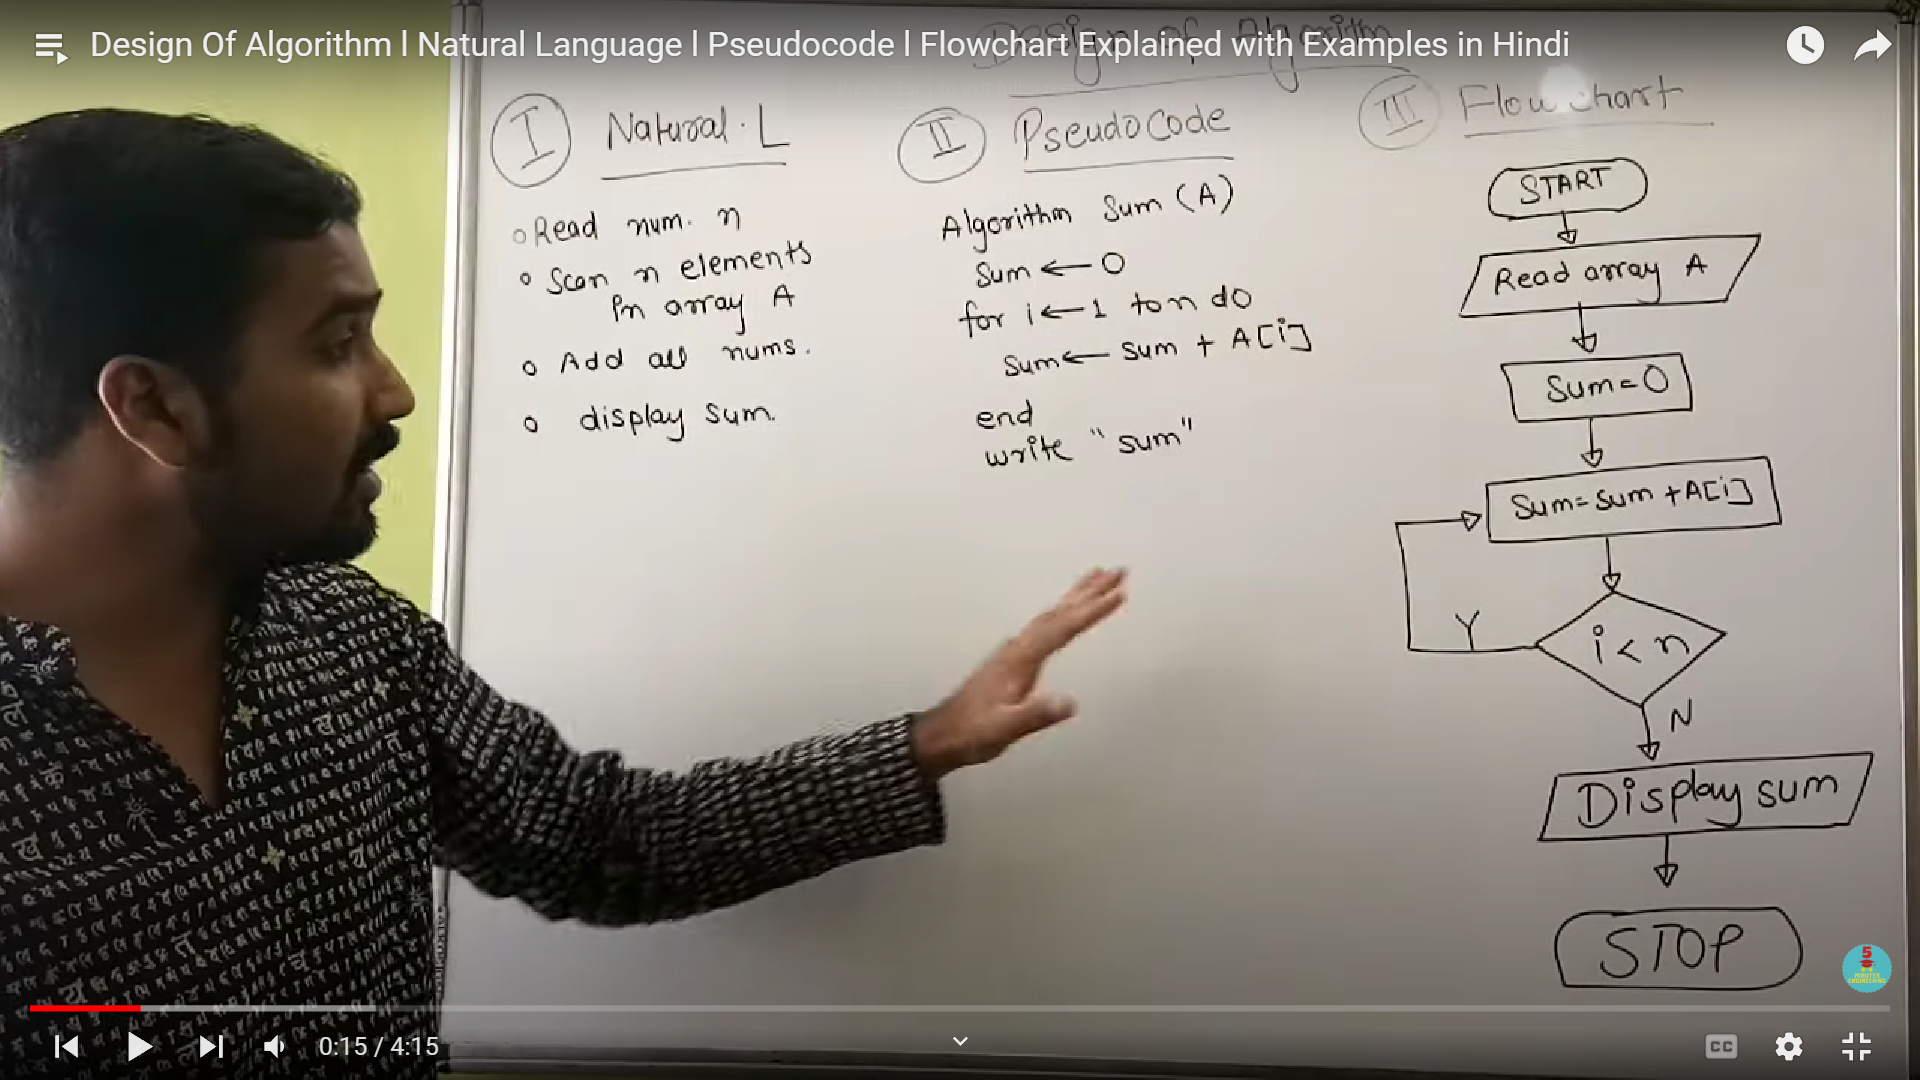 Design Of Algorithm l Natural Language l Pseudocode l Flowchart Explained with Examples in Hindi
Design of Algorithm
I Natural. L
Read num. n
Scan n elements
in array A
Add all nums.
display sum.
II Pseudocode
Algorithm Sum (A)
Sum ← 0
for i ← 1 to n do
Sum ← sum + A[i]
end
write "sum"
III Flowchart
START
Read array A
Sum=0
Sum=sum +A[i]
i < n
Y
N
Display sum
STOP
5
MINUTES
ENGINEERING
0:15 / 4:15
CC